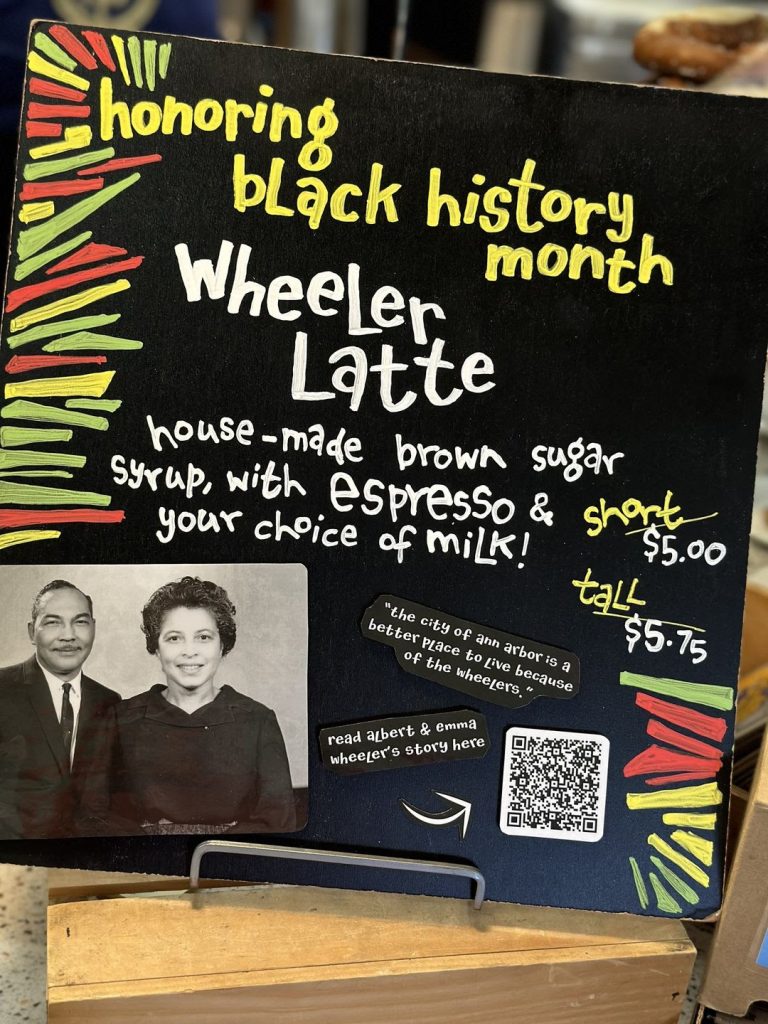 honoring
black history
month
Wheeler
Latte
house-made brown sugar
syrup, with espresso &
your choice of milk!
short
$5.00
tall
$5.75
"the city of ann arbor is a
better place to live because
of the wheelers."
read albert & emma
wheeler's story here